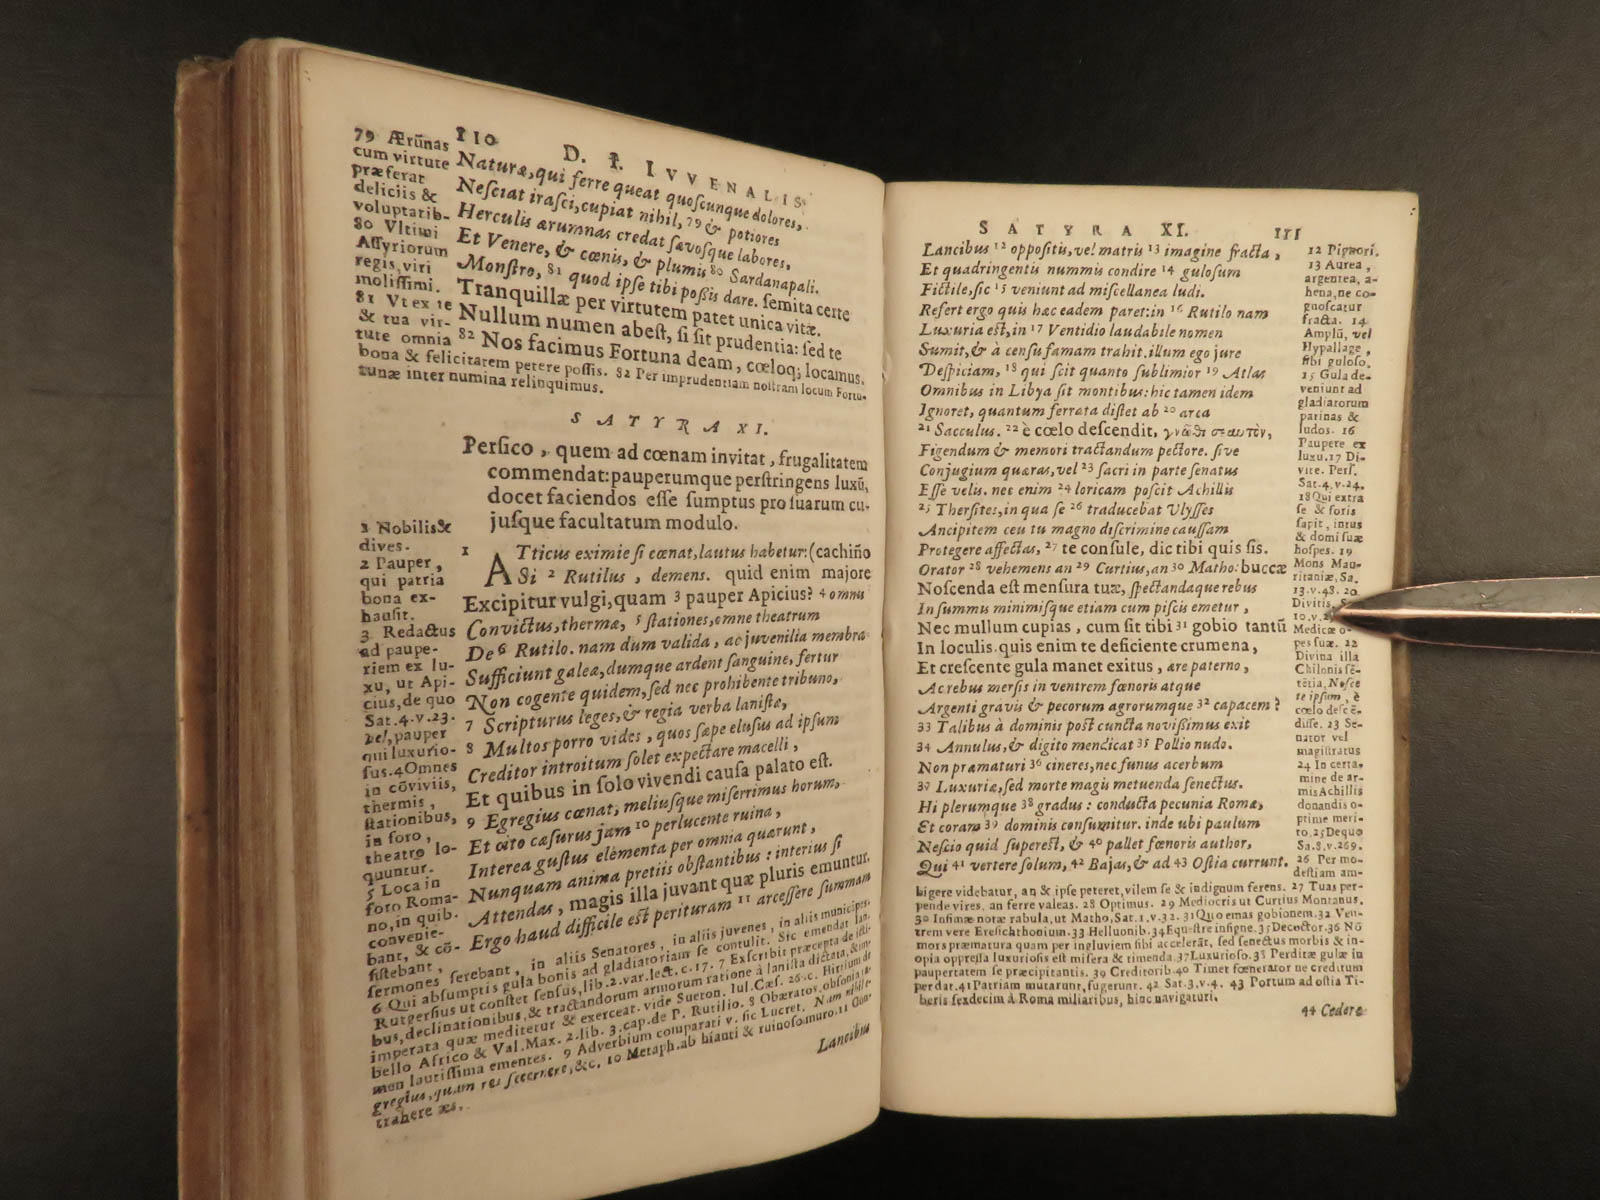 110
D. I. IVVENALIS
Naturæ, qui ferre queat quoſcunque dolores,
Neſciat iraſci, cupiat nihil, 79 & potiores
Herculis ærumnas credat ſævoſque labores,
Et Venere, & cœnis, & plumis 80 Sardanapali.
Monſtro, 81 quod ipſe tibi poßis dare. ſemita certe
Tranquillæ per virtutem patet unica vitæ.
Nullum numen abeſt, ſi ſit prudentia: ſed te
82 Nos facimus Fortuna deam, cœloq; locamus.
79 Ærūnas
cum virtute
præferat
deliciis &
voluptatib-
80 Vltimi
Aſſyriorum
regis, viri
molliſſimi.
81 Vt ex te
& tua vir-
tute omnia
bona & felicitatem petere poſſis. 82 Per imprudentiam noſtram locum Fortu-
tunæ inter numina relinquimus.
SATYRA XI.
Perſico, quem ad cœnam invitat, frugalitatem
commendat: pauperumque perſtringens luxū,
docet faciendos eſſe ſumptus pro ſuarum cu-
juſque facultatum modulo.
1 ATticus eximie ſi cœnat, lautus habetur: (cachiño
Si 2 Rutilus, demens. quid enim majore
Excipitur vulgi, quam 3 pauper Apicius? 4 omnis
Convictus, thermæ, 5 ſtationes, omne theatrum
De 6 Rutilo. nam dum valida, ac juvenilia membra
Sufficiunt galeæ, dumque ardent ſanguine, fertur
Non cogente quidem, ſed nec prohibente tribuno,
7 Scripturus leges, & regia verba laniſtæ,
8 Multos porro vides, quos ſæpe eluſus ad ipſum
Creditor introitum ſolet expectare macelli,
Et quibus in ſolo vivendi cauſa palato eſt.
9 Egregius cœnat, meliuſque miſerrimus horum,
Et cito caſurus jam 10 perlucente ruina,
Interea guſtus elementa per omnia quærunt,
Nunquam anima pretiis obſtantibus: interius ſi
Attendas, magis illa juvant quæ pluris emuntur.
Ergo haud difficile eſt perituram 11 arceſſere ſummam
1 Nobilis &
dives.
2 Pauper,
qui patria
bona ex-
hauſit.
3 Redactus
ad paupe-
riem ex lu-
xu, ut Api-
cius, de quo
Sat. 4. v. 23.
vel, pauper
qui luxurio-
ſus. 4 Omnes
in cōviviis,
thermis,
ſtationibus,
in foro,
theatro lo-
quuntur.
5 Loca in
foro Roma-
no, in quib.
convenie-
bant, & cō-
ſiſtebant,
ſermones ſerebant, in aliis Senatores, in aliis juvenes, in aliis municipes.
6 Qui abſumptis gula bonis ad gladiatoriam ſe contulit. Sic emendat Jan.
Rutgerſius ut conſtet ſenſus, lib. 2. var. lect. c. 17. 7 Exſcribit præcepta de icti-
bus, declinationibus, & tractandorum armorum ratione à laniſta dictata, & im-
imperata quæ meditetur & exerceat. vide Sueton. Iul. Cæſ. 26. c. Hirtium de
bello Africo & Val. Max. 2. lib. 3. cap. de P. Rutilio. 8 Obæratos, obſonia ta-
men lautiſſima ementes. 9 Adverbium comparati v. ſic Lucret. Nam nihil e-
gregius, quam res ſecernere, &c. 10 Metaph. ab hianti & ruinoſo muro. 11 Con-
trahere æs.
Lancibus
SATYRA XI. 111
Lancibus 12 oppoſitis, vel matris 13 imagine fracta,
Et quadringentis nummis condire 14 guloſum
Fictile, ſic 15 veniunt ad miſcellanea ludi.
Refert ergo quis hæc eadem paret: in 16 Rutilo nam
Luxuria eſt, in 17 Ventidio laudabile nomen
Sumit, & à cenſu famam trahit. illum ego jure
Deſpiciam, 18 qui ſcit quanto ſublimior 19 Atlas
Omnibus in Libya ſit montibus: hic tamen idem
Ignoret, quantum ferrata diſtet ab 20 arca
21 Sacculus. 22 è cœlo deſcendit, γνῶθι σεαυτὸν,
Figendum & memori tractandum pectore. ſive
Conjugium quæras, vel 23 ſacri in parte ſenatus
Eſſe velis. nec enim 24 loricam poſcit Achillis
25 Therſites, in qua ſe 26 traducebat Vlyſſes
Ancipitem ceu tu magno diſcrimine cauſſam
Protegere affectas, 27 te conſule, dic tibi quis ſis.
Orator 28 vehemens an 29 Curtius, an 30 Matho: buccæ
Noſcenda eſt menſura tuæ, ſpectandaque rebus
In ſummis minimiſque etiam cum piſcis emetur,
Nec mullum cupias, cum ſit tibi 31 gobio tantū
In loculis. quis enim te deficiente crumena,
Et creſcente gula manet exitus, ære paterno,
Ac rebus merſis in ventrem fœnoris atque
Argenti gravis & pecorum agrorumque 32 capacem?
33 Talibus à dominis poſt cuncta noviſſimus exit
34 Annulus, & digito mendicat 35 Pollio nudo.
Non præmaturi 36 cineres, nec funus acerbum
37 Luxuriæ, ſed morte magis metuenda ſenectus.
Hi plerumque 38 gradus: conducta pecunia Romæ,
Et coram 39 dominis conſumitur. inde ubi paulum
Neſcio quid ſupereſt, & 40 pallet fœnoris author,
Qui 41 vertere ſolum, 42 Bajas, & ad 43 Oſtia currunt.
12 Pignori.
13 Aurea,
argentea, a-
hena, ne co-
gnoſcatur
fracta. 14
Amplū, vel
Hypallage,
ſibi guloſo.
15 Gula de-
veniunt ad
gladiatorum
patinas &
ludos. 16
Paupere ex
luxu. 17 Di-
vite. Perſ.
Sat. 4. v. 24.
18 Qui extra
ſe & foris
ſapit, intus
& domi ſuæ
hoſpes. 19
Mons Mau-
ritaniæ, Sa.
13. v. 48. 20
Divitis, S
10. v. 2
Medicæ o-
pes ſuæ. 22
Divina illa
Chilonis ſē-
tētia, Noſce
te ipſum, è
cœlo deſcē-
diſſe. 23 Se-
nator vel
magiſtratus
24 In certa-
mine de ar-
mis Achillis
donandis o-
ptime meri-
to. 25 De quo
Sa. 8. v. 269.
26 Per mo-
deſtiam am-
bigere videbatur, an & ipſe peteret, vilem ſe & indignum ferens. 27 Tuas per-
pende vires, an ferre valeas. 28 Optimus. 29 Mediocris ut Curtius Montanus.
30 Infimæ notæ rabula, ut Matho, Sat. 1. v. 32. 31 Quo emas gobionem. 32 Ven-
trem vere Ereſichthonium. 33 Helluonib. 34 Equeſtre inſigne. 35 Decoctor. 36 Nō
mors præmatura quam per ingluviem ſibi accelerāt, ſed ſenectus morbis & in-
opia oppreſſa luxurioſis eſt miſera & timenda. 37 Luxurioſo. 38 Perditæ gulæ in
paupertatem ſe præcipitantis. 39 Creditorib. 40 Timet fœnerator ne creditum
perdat. 41 Patriam mutarunt, fugerunt. 42 Sat. 3. v. 4. 43 Portum ad oſtia Ti-
beris ſexdecim à Roma miliaribus, hinc navigaturi.
44 Cedere